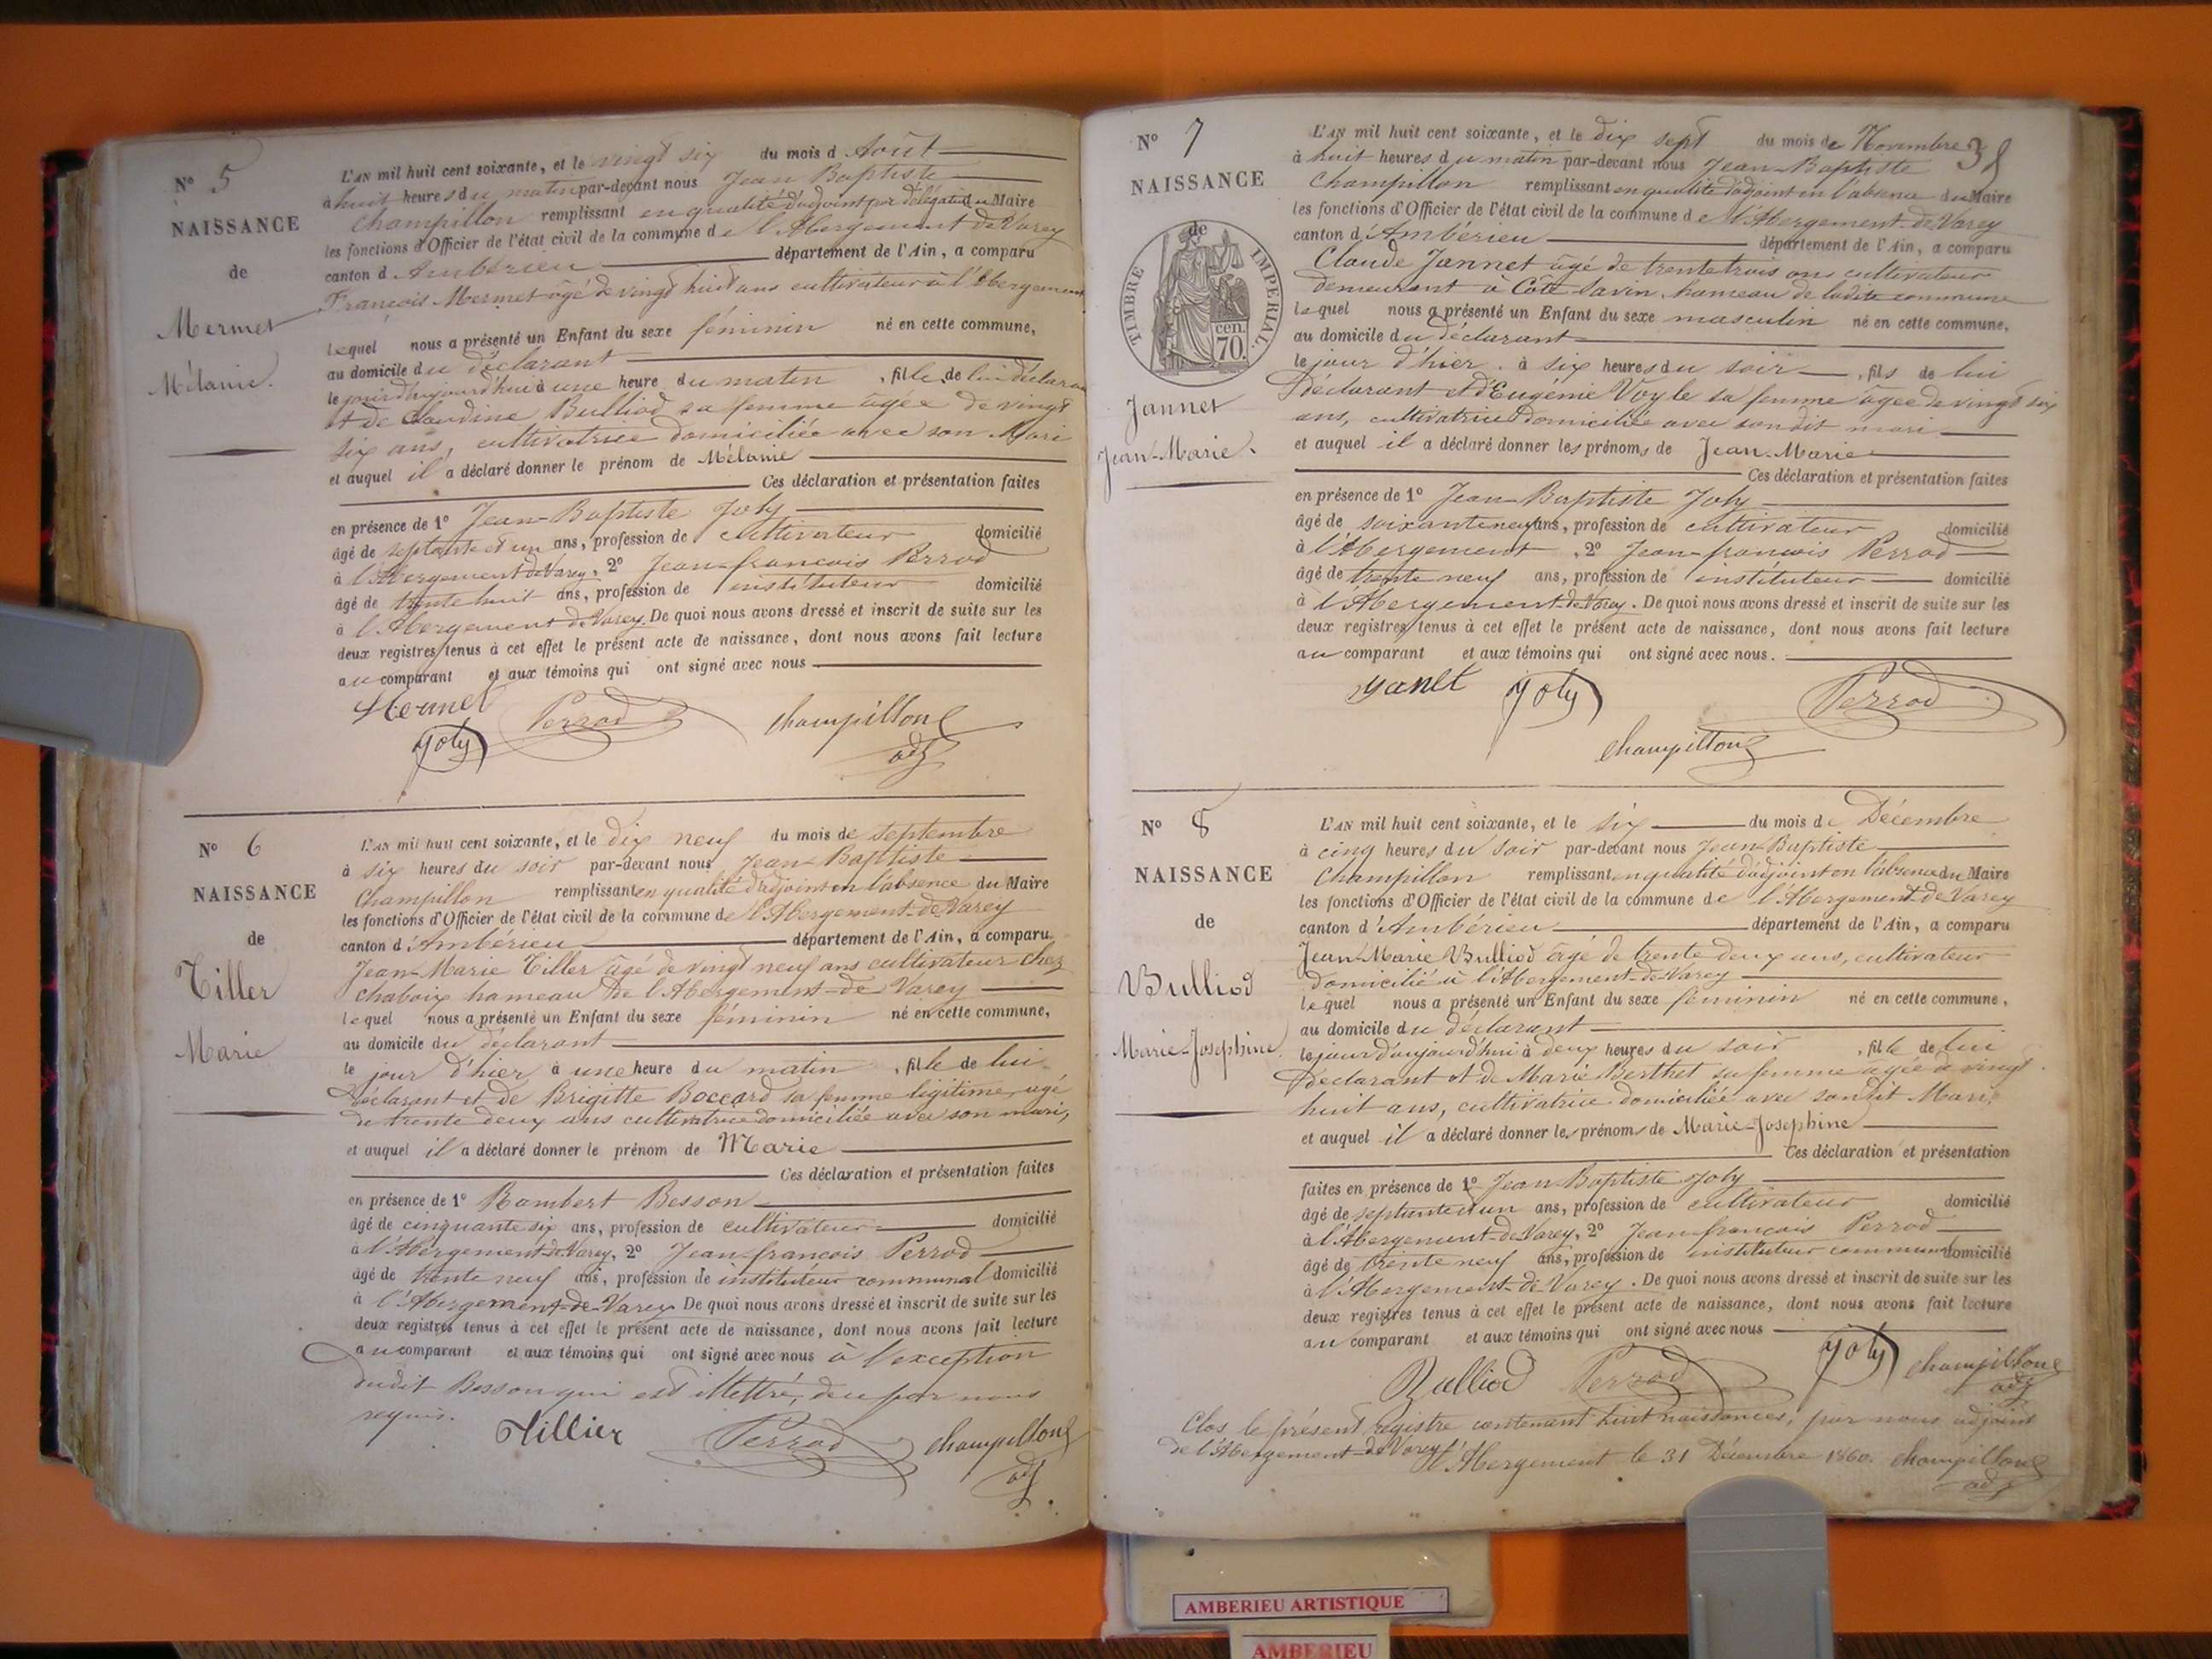 N° 5
NAISSANCE
de
Mermet
Mélanie.
L'AN mil huit cent soixante, et le vingt six du mois d Août
à huit heures du matin par-devant nous Jean Baptiste
Champillon remplissant en qualité d'adjoint par délégation du Maire
les fonctions d'Officier de l'état civil de la commune de l'Abergement de Varey
canton d'Ambérieu département de l'Ain, a comparu
François Mermet âgé de vingt huit ans cultivateur à l'Abergement
lequel nous a présenté un Enfant du sexe féminin né en cette commune,
au domicile du déclarant
le jour d'aujourd'hui à une heure du matin , fille de lui déclarant
et de Claudine Bulliod sa femme âgée de vingt
six ans, cultivatrice domiciliée avec son Mari
et auquel il a déclaré donner le prénom de Mélanie
Ces déclaration et présentation faites
en présence de 1° Jean-Baptiste Joly
âgé de septante et un ans, profession de cultivateur domicilié
à l'Abergement de Varey, 2° Jean-françois Perrod
âgé de trente huit ans, profession de instituteur domicilié
à l'Abergement de Varey. De quoi nous avons dressé et inscrit de suite sur les
deux registres tenus à cet effet le présent acte de naissance, dont nous avons fait lecture
au comparant et aux témoins qui ont signé avec nous
Mermet Perrod Champillon
Joly adj
N° 6
NAISSANCE
de
Tiller
Marie
L'AN mil huit cent soixante, et le dix neuf du mois de septembre
à six heures du soir par-devant nous Jean-Baptiste
Champillon remplissant en qualité d'adjoint en l'absence du Maire
les fonctions d'Officier de l'état civil de la commune de l'Abergement-de-Varey
canton d'Ambérieu département de l'Ain, a comparu
Jean-Marie Tiller âgé de vingt neuf ans cultivateur chez
chaboix hameau de l'Abergement-de-Varey
lequel nous a présenté un Enfant du sexe féminin né en cette commune,
au domicile du déclarant
le jour d'hier à une heure du matin , fille de lui
déclarant et de Brigitte Boccard sa femme légitime, agé
de trente deux ans cultivatrice domiciliée avec son mari,
et auquel il a déclaré donner le prénom de Marie
Ces déclaration et présentation faites
en présence de 1° Rambert Besson
âgé de cinquante six ans, profession de cultivateur domicilié
à l'Abergement-de-Varey, 2° Jean-françois Perrod
âgé de trente neuf ans, profession de instituteur communal domicilié
à l'Abergement-de-Varey De quoi nous avons dressé et inscrit de suite sur les
deux registres tenus à cet effet le présent acte de naissance, dont nous avons fait lecture
au comparant et aux témoins qui ont signé avec nous à l'exception
dudit Besson qui est illettré, de ce par nous
requis.
Tillier Perrod Champillon
adj
N° 7
NAISSANCE
de
TIMBRE IMPERIAL
70 cen.
Jannet
Jean-Marie.
38
L'AN mil huit cent soixante, et le dix sept du mois de Novembre
à huit heures du matin par-devant nous Jean-Baptiste
Champillon remplissant en qualité d'adjoint en l'absence du Maire
les fonctions d'Officier de l'état civil de la commune de l'Abergement-de-Varey
canton d'Ambérieu département de l'Ain, a comparu
Claude Jannet âgé de trente trois ans cultivateur
demeurant à Côte Savin hameau de ladite commune
lequel nous a présenté un Enfant du sexe masculin né en cette commune,
au domicile du déclarant
le jour d'hier à six heures du soir , fils de lui
déclarant et d'Eugénie Voyle sa femme âgée de vingt six
ans, cultivatrice domiciliée avec son dit mari
et auquel il a déclaré donner les prénoms de Jean-Marie
Ces déclaration et présentation faites
en présence de 1° Jean-Baptiste Joly
âgé de soixante neuf ans, profession de cultivateur domicilié
à l'Abergement , 2° Jean-françois Perrod
âgé de trente neuf ans, profession de instituteur domicilié
à l'Abergement-de-Varey. De quoi nous avons dressé et inscrit de suite sur les
deux registres tenus à cet effet le présent acte de naissance, dont nous avons fait lecture
au comparant et aux témoins qui ont signé avec nous.
Joly Perrod
Champillon
N° 8
NAISSANCE
de
Bulliod
Marie-Josephine
L'AN mil huit cent soixante, et le six du mois de Décembre
à cinq heures du soir par-devant nous Jean-Baptiste
Champillon remplissant en qualité d'adjoint en l'absence du Maire
les fonctions d'Officier de l'état civil de la commune de l'Abergement-de-Varey
canton d'Ambérieu département de l'Ain, a comparu
Jean-Marie Bulliod âgé de trente deux ans, cultivateur
domicilié à l'Abergement-de-Varey
lequel nous a présenté un Enfant du sexe féminin né en cette commune,
au domicile du déclarant
le jour d'aujourd'hui à deux heures du soir , fille de lui
déclarant et de Marie Berthet sa femme âgée de vingt
huit ans, cultivatrice domiciliée avec son dit Mari,
et auquel il a déclaré donner les prénoms de Marie-Josephine
Ces déclaration et présentation
faites en présence de 1° Jean-Baptiste Joly
âgé de septante et un ans, profession de cultivateur domicilié
à l'Abergement-de-Varey, 2° Jean françois Perrod
âgé de trente neuf ans, profession de instituteur communal domicilié
à l'Abergement-de-Varey. De quoi nous avons dressé et inscrit de suite sur les
deux registres tenus à cet effet le présent acte de naissance, dont nous avons fait lecture
au comparant et aux témoins qui ont signé avec nous
Bulliod Perrod Joly Champillon
adj
Clos le présent registre contenant huit naissances, par nous adjoint
de l'Abergement-de-Varey l'Abergement le 31 Décembre 1860. Champillon
adj
AMBERIEU ARTISTIQUE
AMBERIEU